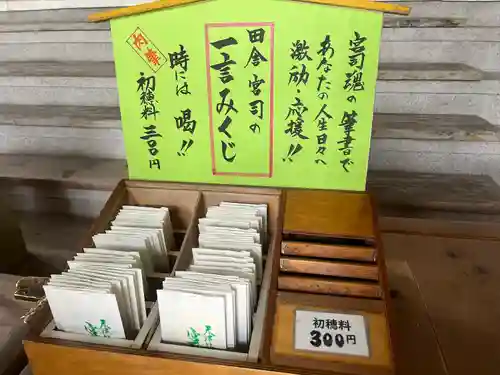 宮司魂の筆書で
あなたの人生日々へ
激励・応援!!
田舎宮司の
一言みくじ
時には喝!!
初穂料三〇〇円
初穂料
300円